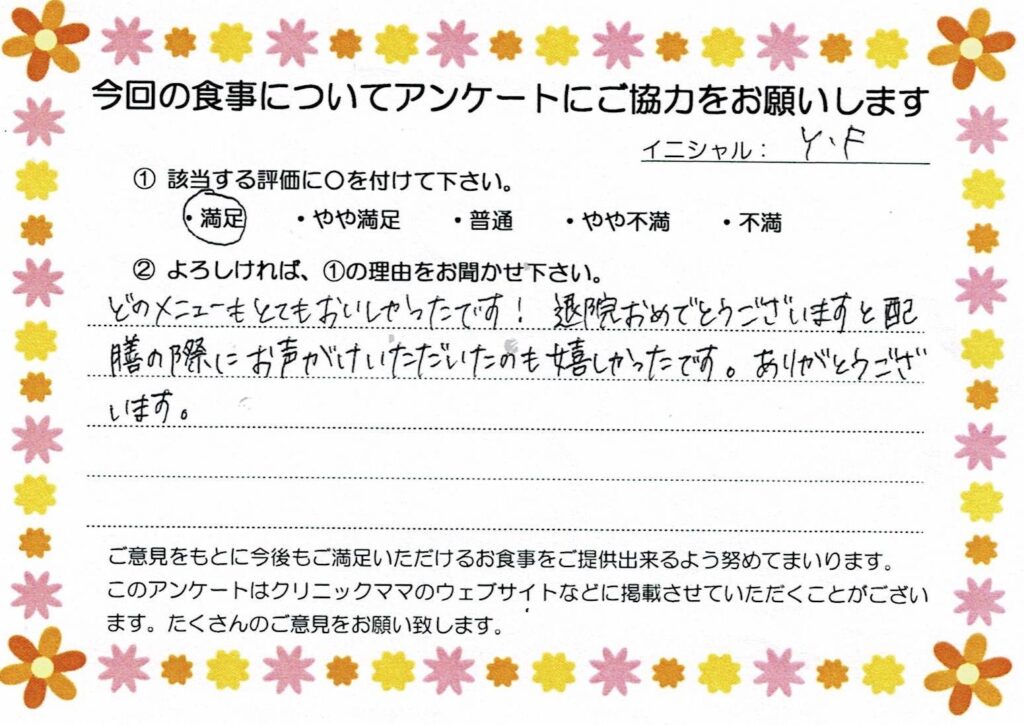 今回の食事についてアンケートにご協力をお願いします
イニシャル： Y.F
① 該当する評価に〇を付けて下さい。
・満足 ・やや満足 ・普通 ・やや不満 ・不満
② よろしければ、①の理由をお聞かせ下さい。
どのメニューもとてもおいしかったです！ 退院おめでとうございますと配
膳の際にお声がけいただいたのも嬉しかったです。ありがとうござ
います。
ご意見をもとに今後もご満足いただけるお食事をご提供出来るよう努めてまいります。
このアンケートはクリニックママのウェブサイトなどに掲載させていただくことがござい
ます。たくさんのご意見をお願い致します。